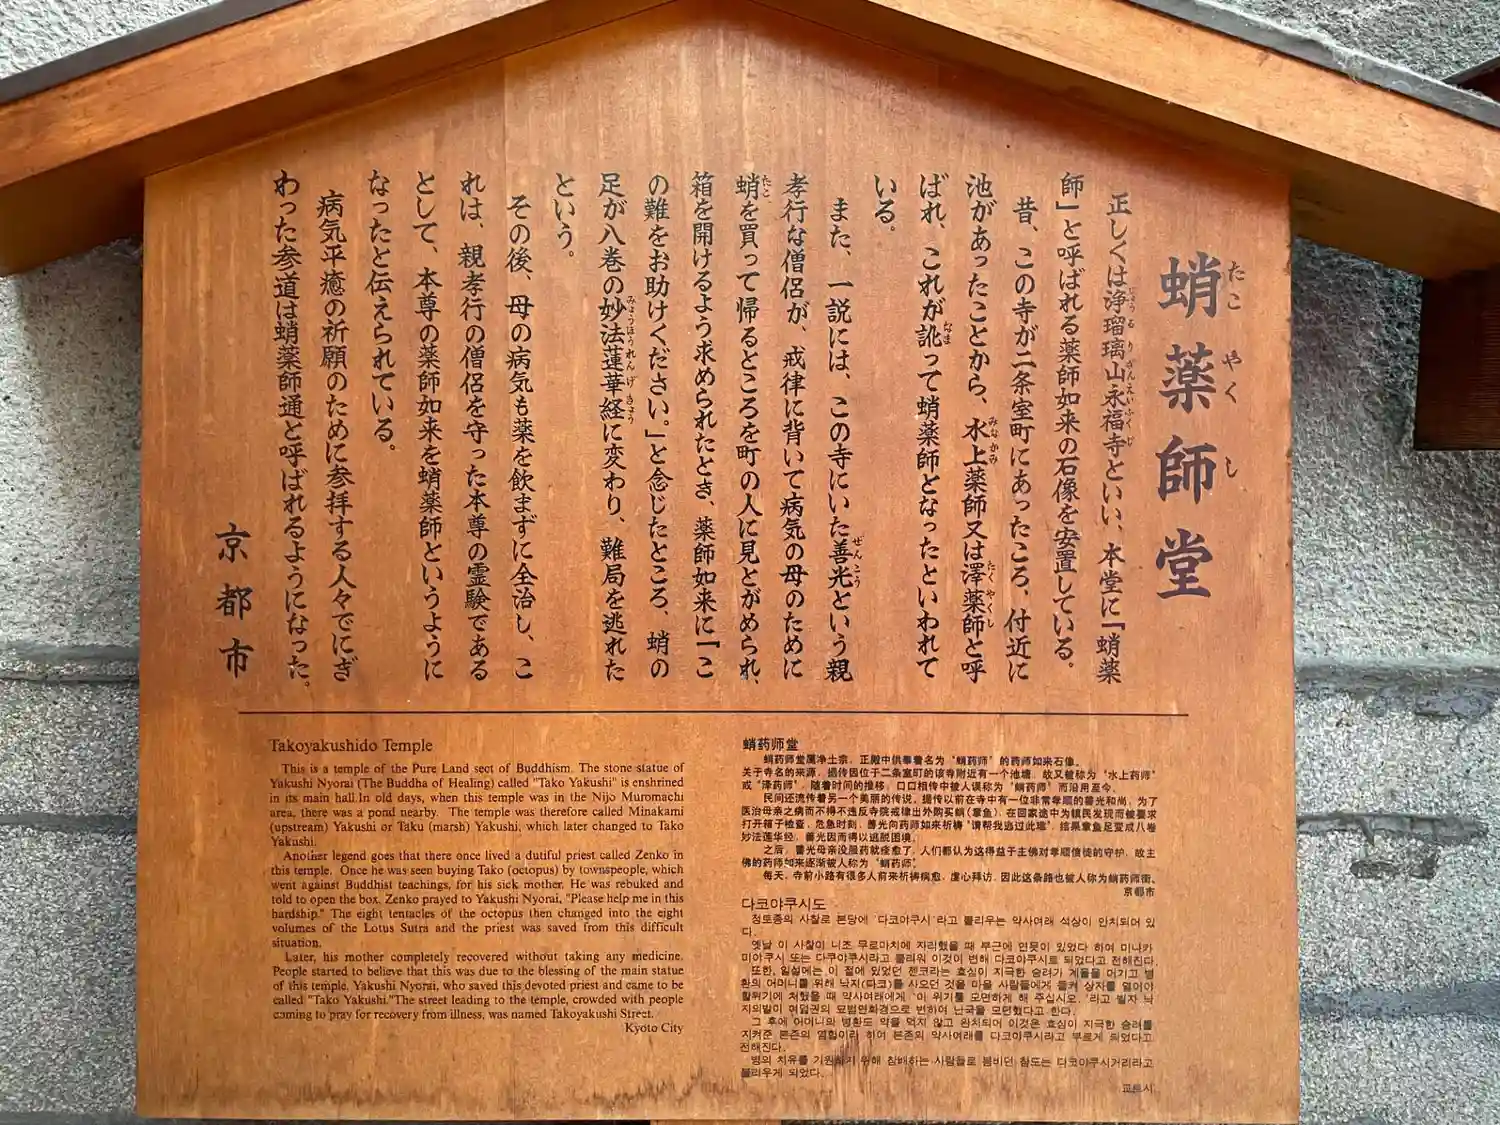 蛸薬師堂
正しくは浄瑠璃山永福寺といい、本堂に「蛸薬
師」と呼ばれる薬師如来の石像を安置している。
昔、この寺が二条室町にあったころ、付近に
池があったことから、水上薬師又は澤薬師と呼
ばれ、これが訛って蛸薬師となったといわれて
いる。
また、一説には、この寺にいた善光という親
孝行な僧侶が、戒律に背いて病気の母のために
蛸を買って帰るところを町の人に見とがめられ、
箱を開けるよう求められたとき、薬師如来に「こ
の難をお助けください。」と念じたところ、蛸の
足が八巻の妙法蓮華経に変わり、難局を逃れた
という。
その後、母の病気も薬を飲まずに全治し、こ
れは、親孝行の僧侶を守った本尊の霊験である
として、本尊の薬師如来を蛸薬師というように
なったと伝えられている。
病気平癒の祈願のために参拝する人々でにぎ
わった参道は蛸薬師通と呼ばれるようになった。
京都市
Takoyakushido Temple
This is a temple of the Pure Land sect of Buddhism. The stone statue of
Yakushi Nyorai (The Buddha of Healing) called "Tako Yakushi" is enshrined
in its main hall.In old days, when this temple was in the Nijo Muromachi
area, there was a pond nearby. The temple was therefore called Minakami
(upstream) Yakushi or Taku (marsh) Yakushi, which later changed to Tako
Yakushi.
Another legend goes that there once lived a dutiful priest called Zenko in
this temple. Once he was seen buying Tako (octopus) by townspeople, which
went against Buddhist teachings, for his sick mother. He was rebuked and
told to open the box. Zenko prayed to Yakushi Nyorai, "Please help me in this
hardship." The eight tentacles of the octopus then changed into the eight
volumes of the Lotus Sutra and the priest was saved from this difficult
situation.
Later, his mother completely recovered without taking any medicine.
People started to believe that this was due to the blessing of the main statue
of this temple, Yakushi Nyorai, who saved this devoted priest and came to be
called "Tako Yakushi."The street leading to the temple, crowded with people
coming to pray for recovery from illness, was named Takoyakushi Street.
Kyoto City
蛸药师堂
蛸药师堂属净土宗，正殿中供奉着名为“蛸药师”的药师如来石像。
关于寺名的来源，据传因位于二条室町的该寺附近有一个池塘，故又被称为“水上药师”
或“泽药师”，随着时间的推移，口口相传中被人误称为“蛸药师”而沿用至今。
民间还流传着另一个美丽的传说，据传以前在寺中有一位非常孝顺的善光和尚，为了
医治母亲之病而不得不违反寺院戒律出外购买蛸(章鱼)，在回家途中为镇民发现而被要求
打开箱子检查，危急时刻，善光向药师如来祈祷“请帮我逃过此难”，结果章鱼足变成八卷
妙法莲华经，善光因而得以逃脱困境。
之后，善光母亲没服药就痊愈了，人们都认为这得益于主佛对孝顺信徒的守护，故主
佛的药师如来逐渐被人称为“蛸药师”。
每天，寺前小路有很多人前来祈祷病愈，虔心拜访，因此这条路也被人称为蛸药师街。
京都市
다코야쿠시도
정토종의 사찰로 본당에 '다코야쿠시'라고 불리우는 약사여래 석상이 안치되어 있
다.
옛날 이 사찰이 니조 무로마치에 자리했을 때 부근에 연못이 있었다 하여 미나카
미야쿠시 또는 다쿠야쿠시라고 불리워 이것이 변해 다코야쿠시로 되었다고 전해진다.
또한, 일설에는 이 절에 있었던 젠코라는 효심이 지극한 승려가 계율을 어기고 병
환의 어머니를 위해 낙지(다코)를 사오던 것을 마을 사람들에게 들켜 상자를 열어야
할위기에 처했을 때 약사여래에게 '이 위기를 모면하게 해 주십시오.'라고 빌자 낙
지의발이 여덟권의 묘법연화경으로 변하여 난국을 모면했다고 한다.
그 후에 어머니의 병환도 약을 먹지 않고 완치되어 이것은 효심이 지극한 승려를
지켜준 본존의 영험이라 하여 본존의 약사여래를 다코야쿠시라고 부르게 되었다고
전해진다.
병의 치유를 기원하기 위해 참배하는 사람들로 붐비던 참도는 다코야쿠시거리라고
불리우게 되었다.
교토시